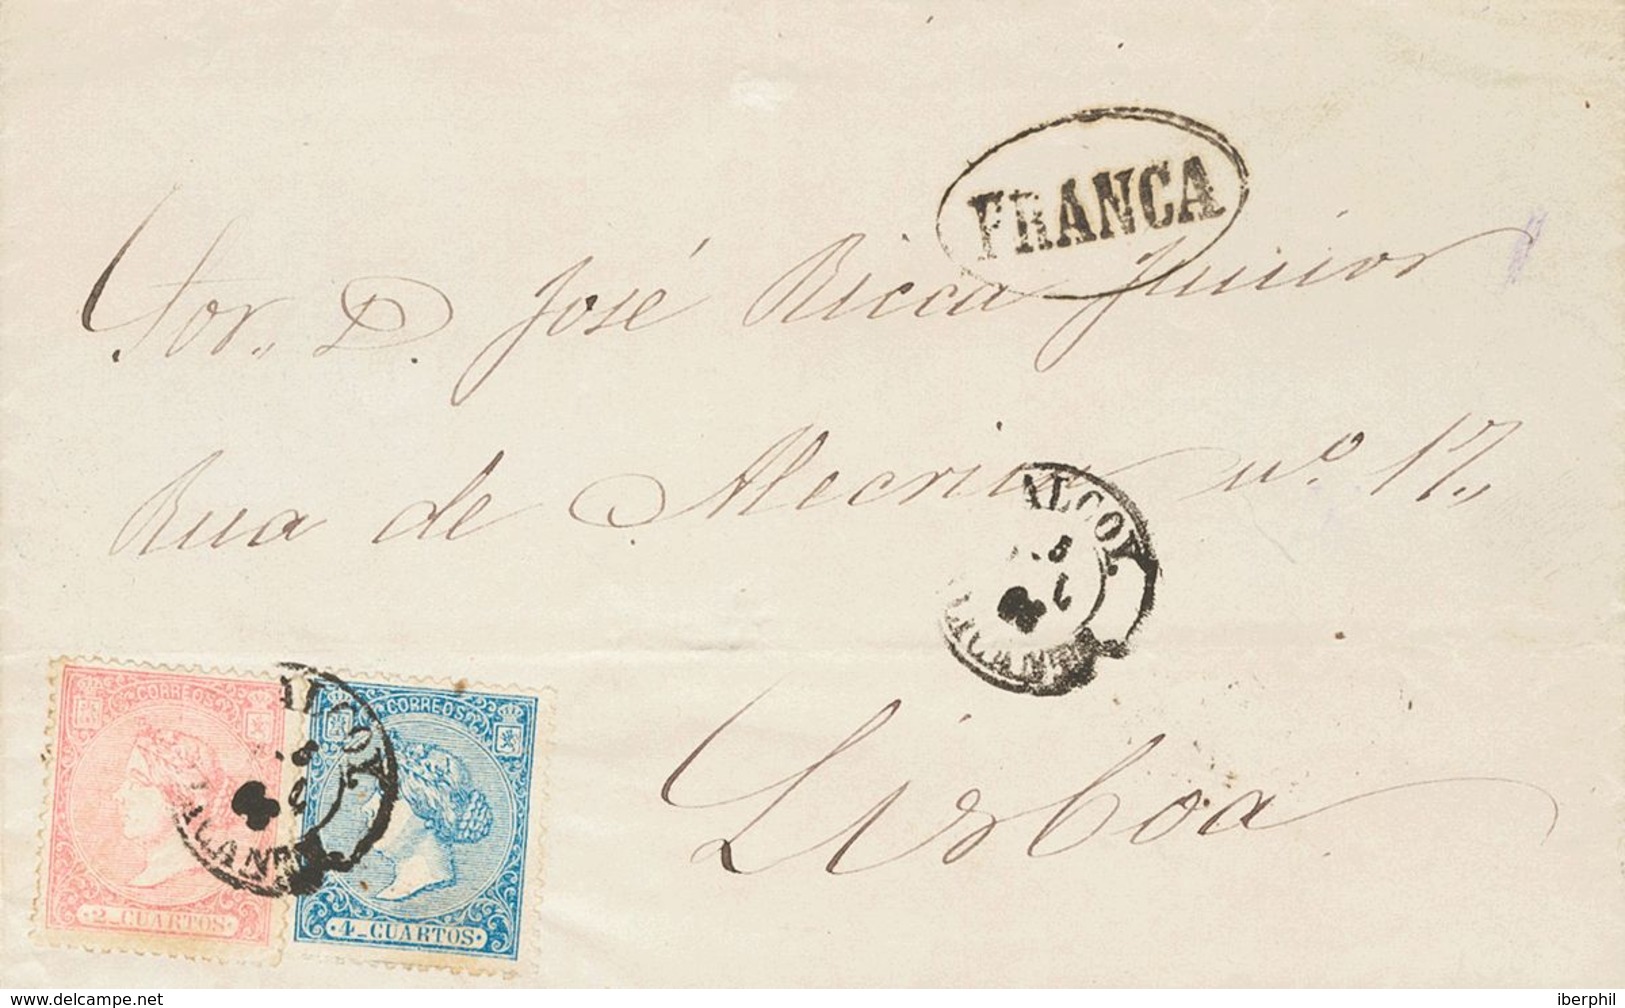 FRANCA
Sor. D. José Ricca Junior
Rua de Alecrim nº 17,,
ALCOY
ALICANTE
Lisboa
CORREOS
2_CUARTOS
ALCOY
ALICANTE
CORREOS
4_CUARTOS
www.delcampe.net
iberphil